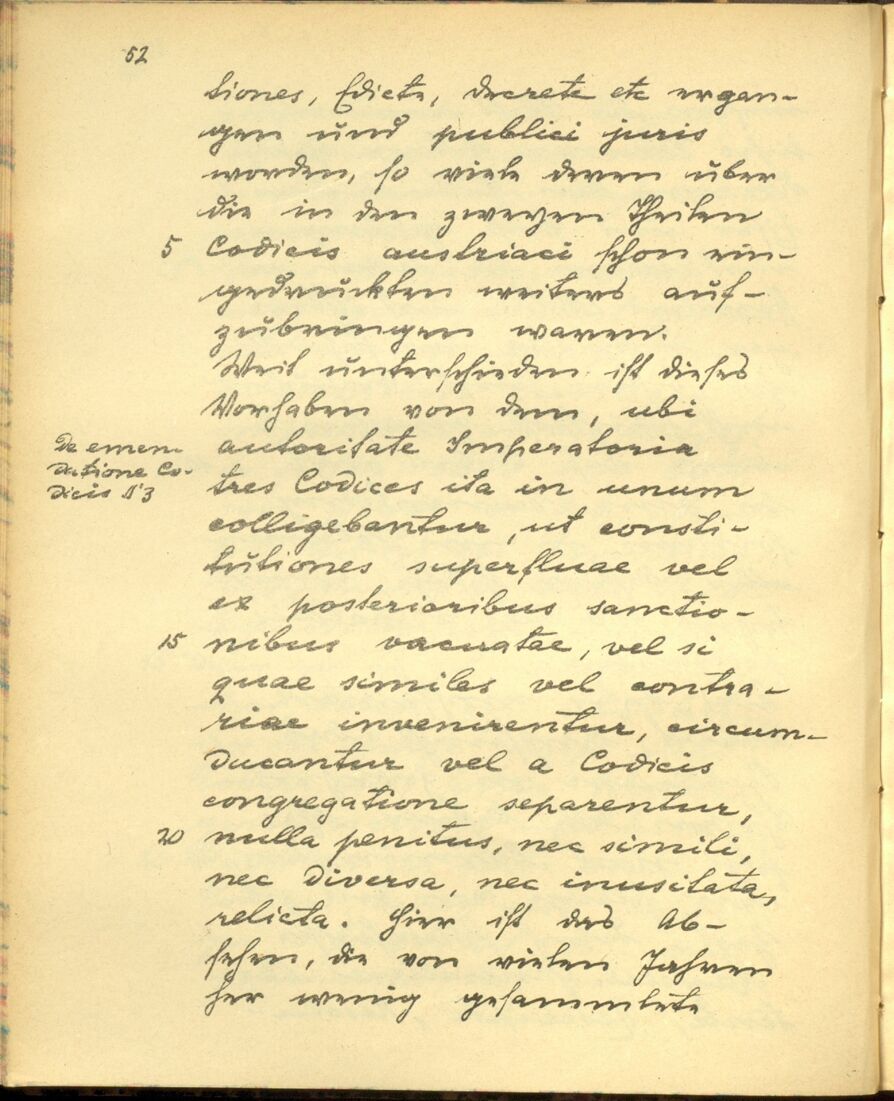 52
tiones, Edicte, decrete etc ergan-
gen und publici juris
worden, so viele deren über
die in den zweyen Theilen
5 Codicis austriaci schon ein-
gedruckten weiters auf-
zubringen waren.
Weit unterschieden ist dieses
Vorhaben von dem, ubi
De emen-
datione Co-
dicis § 3
autoritate Imperatoria
tres Codices ita in unum
colligebantur, ut consti-
tutiones superfluae vel
ex posterioribus sanctio-
15 nibus vacuatae, vel si
quae similes vel contra-
riae invenirentur, circum-
ducantur vel a Codicis
congregatione separentur,
20 nulla penitus, nec simili,
nec diversa, nec inusitata,
relicta. Hier ist das Ab-
sehen, die von vielen Jahren
her wenig gesammlete